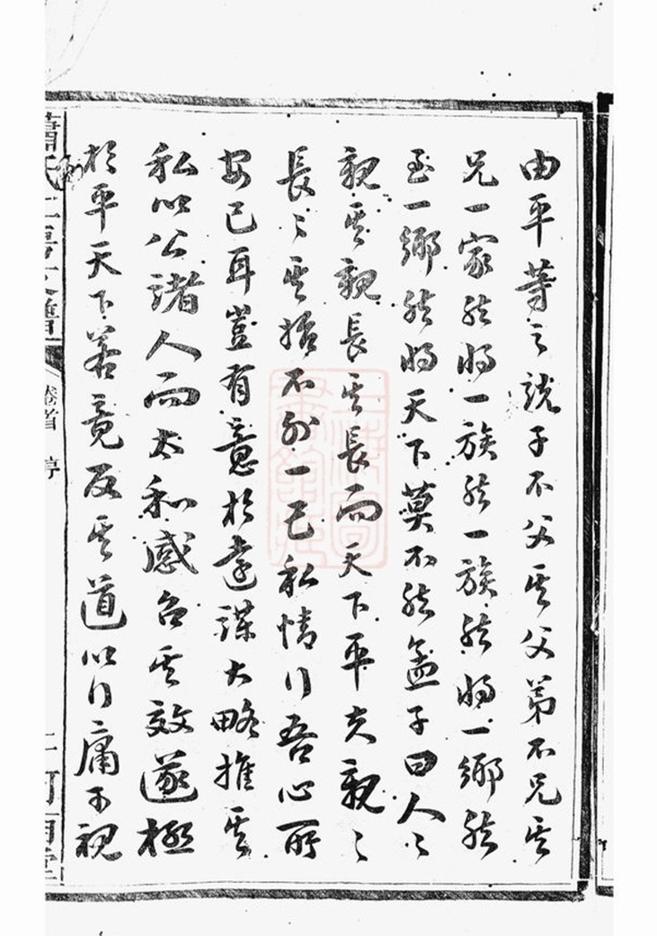 由平等之說子不父其父弟不兄其
兄一家然將一族然一族然將一鄉然
至一鄉然將天下莫不然孟子曰人〻
親其親長其長而天下平夫親〻
長〻其始不外一己私情行吾心所
安已耳豈有意於遠謨大略推其
私以公諸人而太和感召其效遂極
於平天下若竟反其道以行庸可視
卷首 序